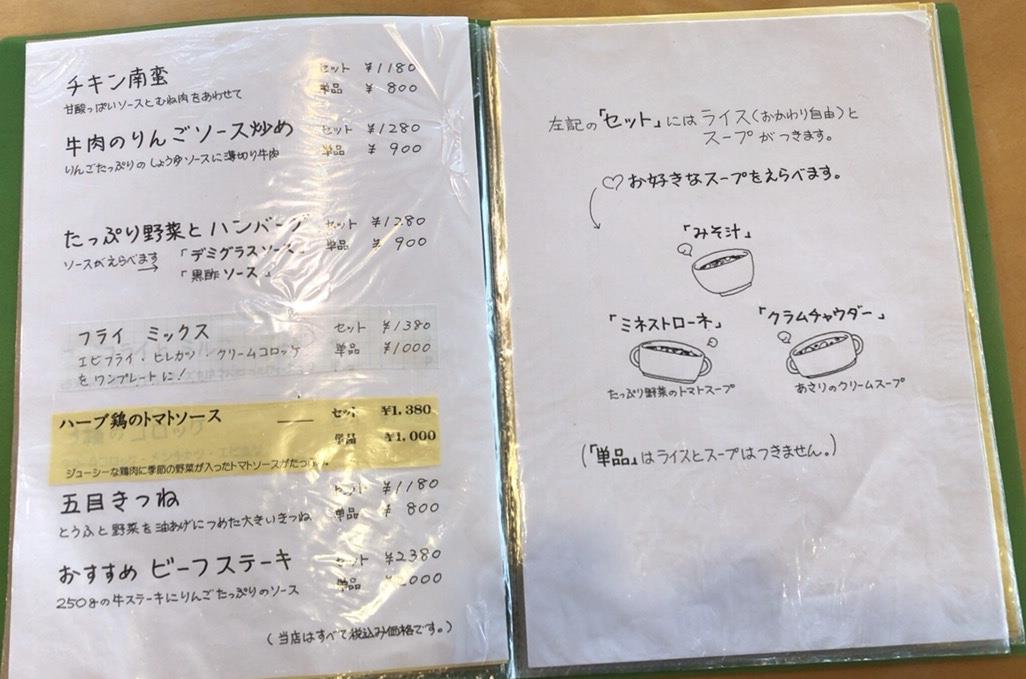 チキン南蛮 セット ¥1180
甘酸っぱいソースとむね肉をあわせて 単品 ¥800
牛肉のりんごソース炒め セット ¥1280
りんごたっぷりのしょうゆソースに薄切り牛肉 単品 ¥900
たっぷり野菜とハンバーグ セット ¥1280
ソースがえらべます → 「デミグラスソース」 単品 ¥900
「黒酢ソース」
フライ ミックス セット ¥1380
エビフライ・ヒレカツ・クリームコロッケ 単品 ¥1000
をワンプレートに!
ハーブ鶏のトマトソース セット ¥1,380
単品 ¥1,000
ジューシーな鶏肉に季節の野菜が入ったトマトソースがたっぷり。
五目きつね セット ¥1180
とうふと野菜を油あげにつめた大きいきつね 単品 ¥800
おすすめ ビーフステーキ セット ¥2380
250gの牛ステーキにりんごたっぷりのソース 単品 ¥2000
(当店はすべて税込み価格です。)
左記の「セット」にはライス(おかわり自由)と
スープがつきます。
♡お好きなスープをえらべます。
「みそ汁」
「ミネストローネ」
たっぷり野菜のトマトスープ
「クラムチャウダー」
あさりのクリームスープ
(「単品」はライスとスープはつきません。)